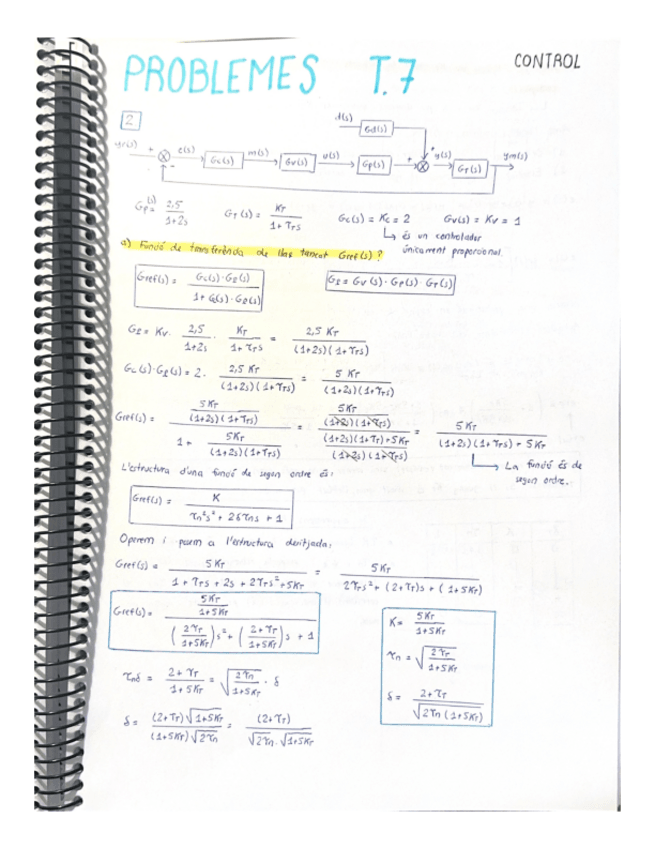 CONTROL
PROBLEMES T.7
2
d(s)
Gd(s)
yr(s) + e(s) Gc(s) m(s) Gv(s) u(s) Gp(s) + + y(s) GT(s) ym(s)
-
Gp(s) = 2,5 / (1+2s) GT(s) = KT / (1+τTs) Gc(s) = Kc = 2 Gv(s) = Kv = 1
↳ és un controlador
únicament proporcional.
a) Funció de transferència de llaç tancat Gref(s)?
Gref(s) = Gc(s)·Gl(s) / (1+Gc(s)·Gl(s)) Gl = Gv(s)·Gp(s)·GT(s)
Gl = Kv · 2,5 / (1+2s) · KT / (1+τTs) = 2,5 KT / ((1+2s)(1+τTs))
Gc(s)·Gl(s) = 2 · 2,5 KT / ((1+2s)(1+τTs)) = 5 KT / ((1+2s)(1+τTs))
Gref(s) = (5KT / ((1+2s)(1+τTs))) / (1 + 5KT / ((1+2s)(1+τTs))) = (5KT / ((1+2s)(1+τTs))) / (((1+2s)(1+τT)+5KT) / ((1+2s)(1+τTs))) = 5 KT / ((1+2s)(1+τTs) + 5KT)
↳ La funció és de
segon ordre.
L'estructura d'una funció de segon ordre és:
Gref(s) = K / (τn²s² + 2δτns + 1)
Operem i parem a l'estructura desitjada:
Gref(s) = 5 KT / (1 + τTs + 2s + 2τTs² + 5KT) = 5KT / (2τTs² + (2+τT)s + (1+5KT))
Gref(s) = (5KT / (1+5KT)) / ((2τT / (1+5KT))s² + ((2+τT) / (1+5KT))s + 1)
K = 5KT / (1+5KT)
τn = √(2τT / (1+5KT))
δ = (2+τT) / √(2τn (1+5KT))
τnδ = (2+τT) / (1+5KT) = √(2τn / (1+5KT)) · δ
δ = (2+τT)√(1+5KT) / ((1+5KT)√(2τn)) = (2+τT) / (√(2τn)·√(1+5KT))